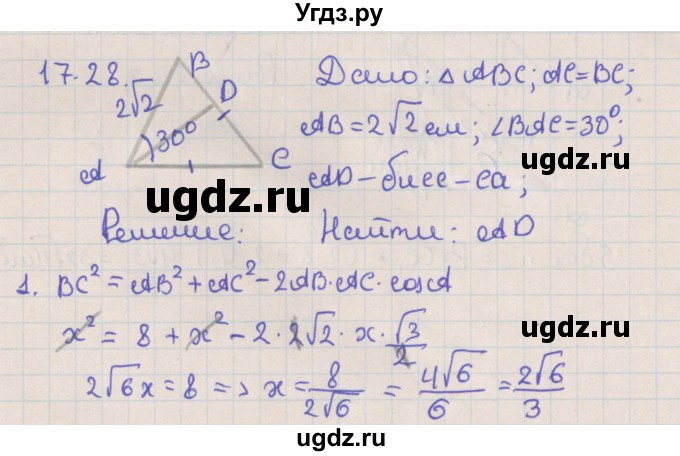 Угдз.ру
17.28.
B
2√2
D
30°
A
C
Дано: △ ABC; AC=BC;
AB=2√2 см; ∠BAC=30°;
AD – бисс-са;
ugdz.ru
ugdz.ru
Решение:
Найти: AD
1. BC² = AB² + AC² – 2AB·AC·cosA
x² = 8 + x² – 2·2√2·x·√3/2
ugdz.ru
2√6x = 8 => x = 8/2√6 = 4√6/6 = 2√6/3
ugdz.ru
ugdz.ru